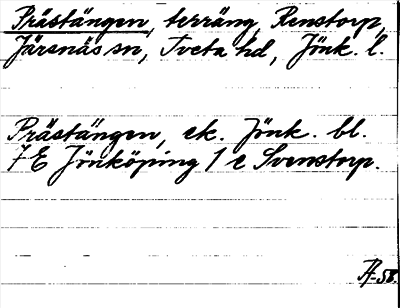 Prästängen, terräng, Renstorp,
Järsnäs sn, Tveta hd, Jönk. l.
Prästängen, ek. Jönk. bl.
7 E Jönköping 1 e Svenstorp.
A-58.